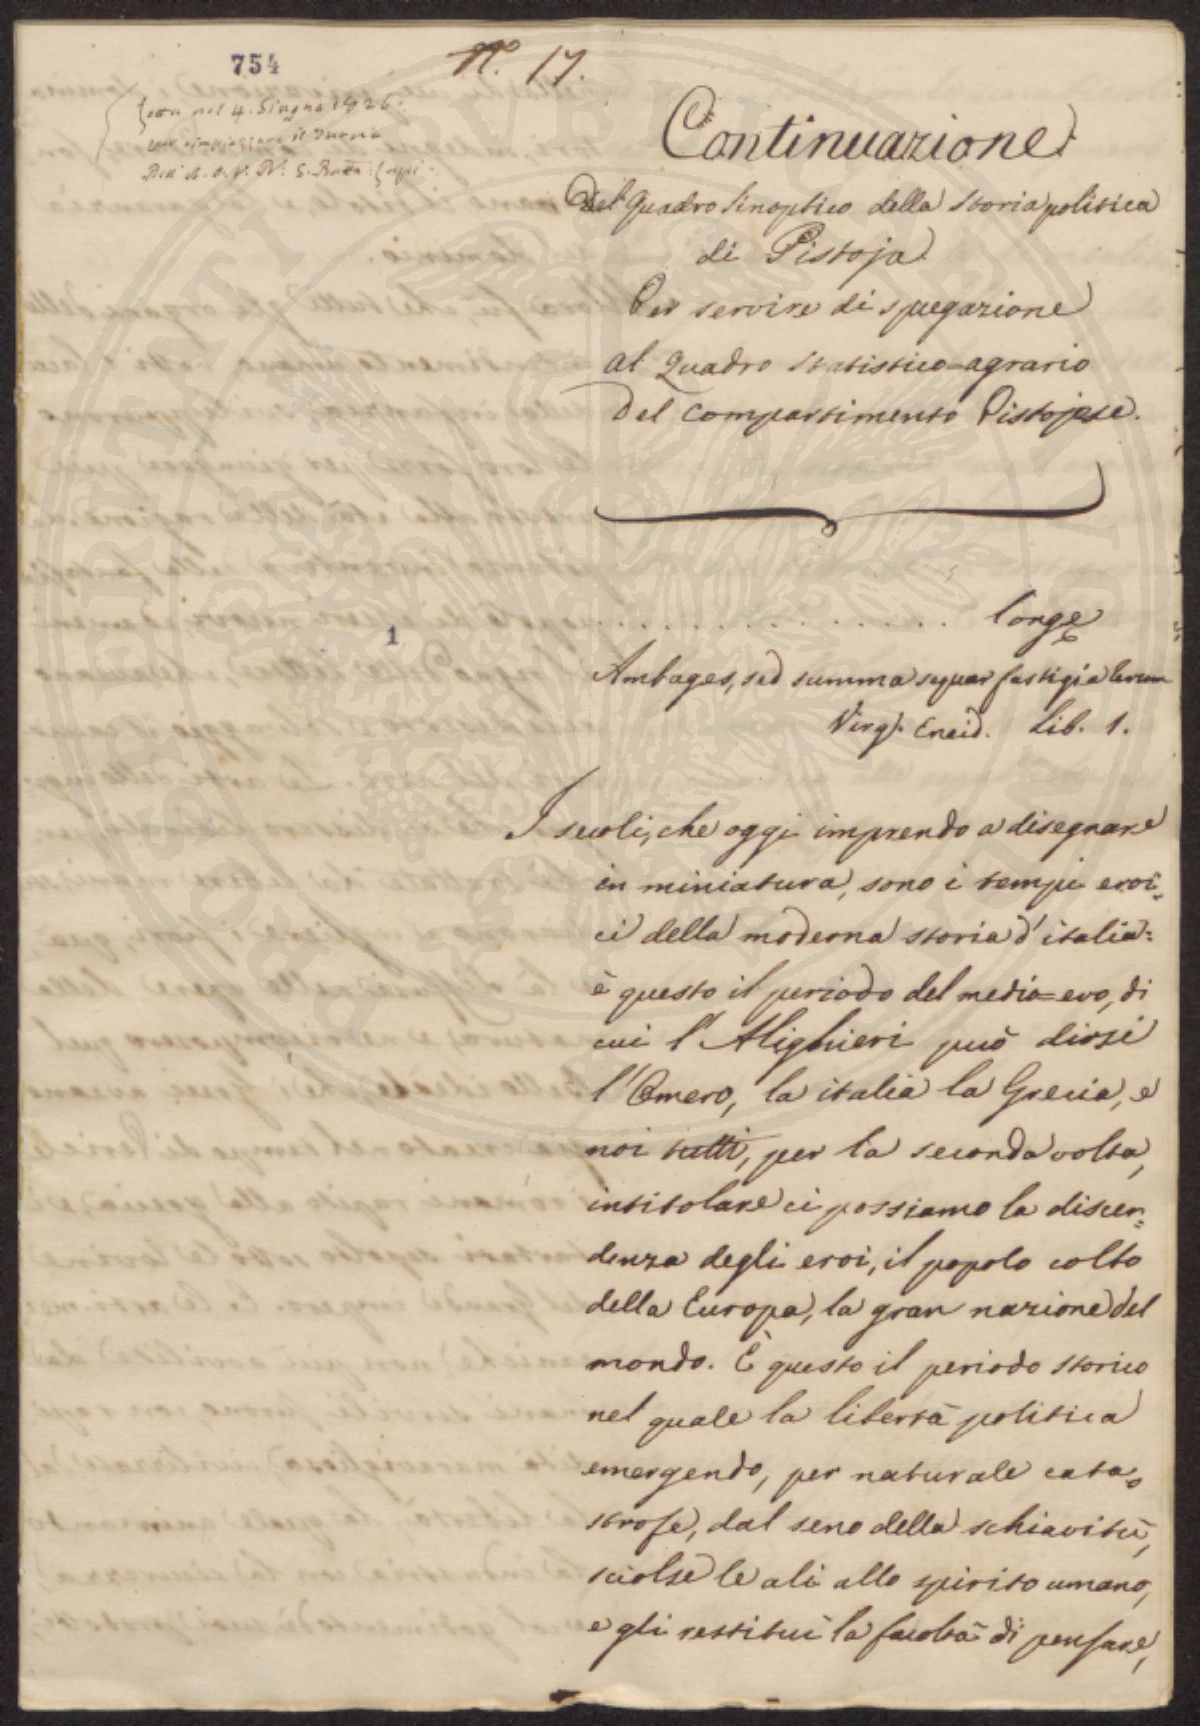 754
N.° 17.
nel 4. Giugno 1826.
il
Continuazione
Del Quadro Sinoptico della Storia politica
di Pistoja
Per servire di spiegazione
al Quadro Statistico=agrario
Del Compartimento Pistojese.
. . . . . . . . . . . . . . . longe
Ambages, sed summa sequar fastigia rerum
Virg. Eneid. Lib. 1.
1
I secoli, che oggi imprendo a disegnare
in miniatura, sono i tempi eroi=
ci della moderna storia d'italia:
è questo il periodo del medio=evo, di
cui l'Alighieri può dirsi
l'Omero, la italia la Grecia, e
noi tutti, per la seconda volta,
intitolare ci possiamo la discen=
denza degli eroi, il popolo colto
della Europa, la gran nazione del
mondo. È questo il periodo storico
nel quale la libertà politica
emergendo, per naturale cata=
strofe, dal seno della schiavitù,
sciolse le ali allo spirito umano,
e gli restituì la facoltà di pensare,